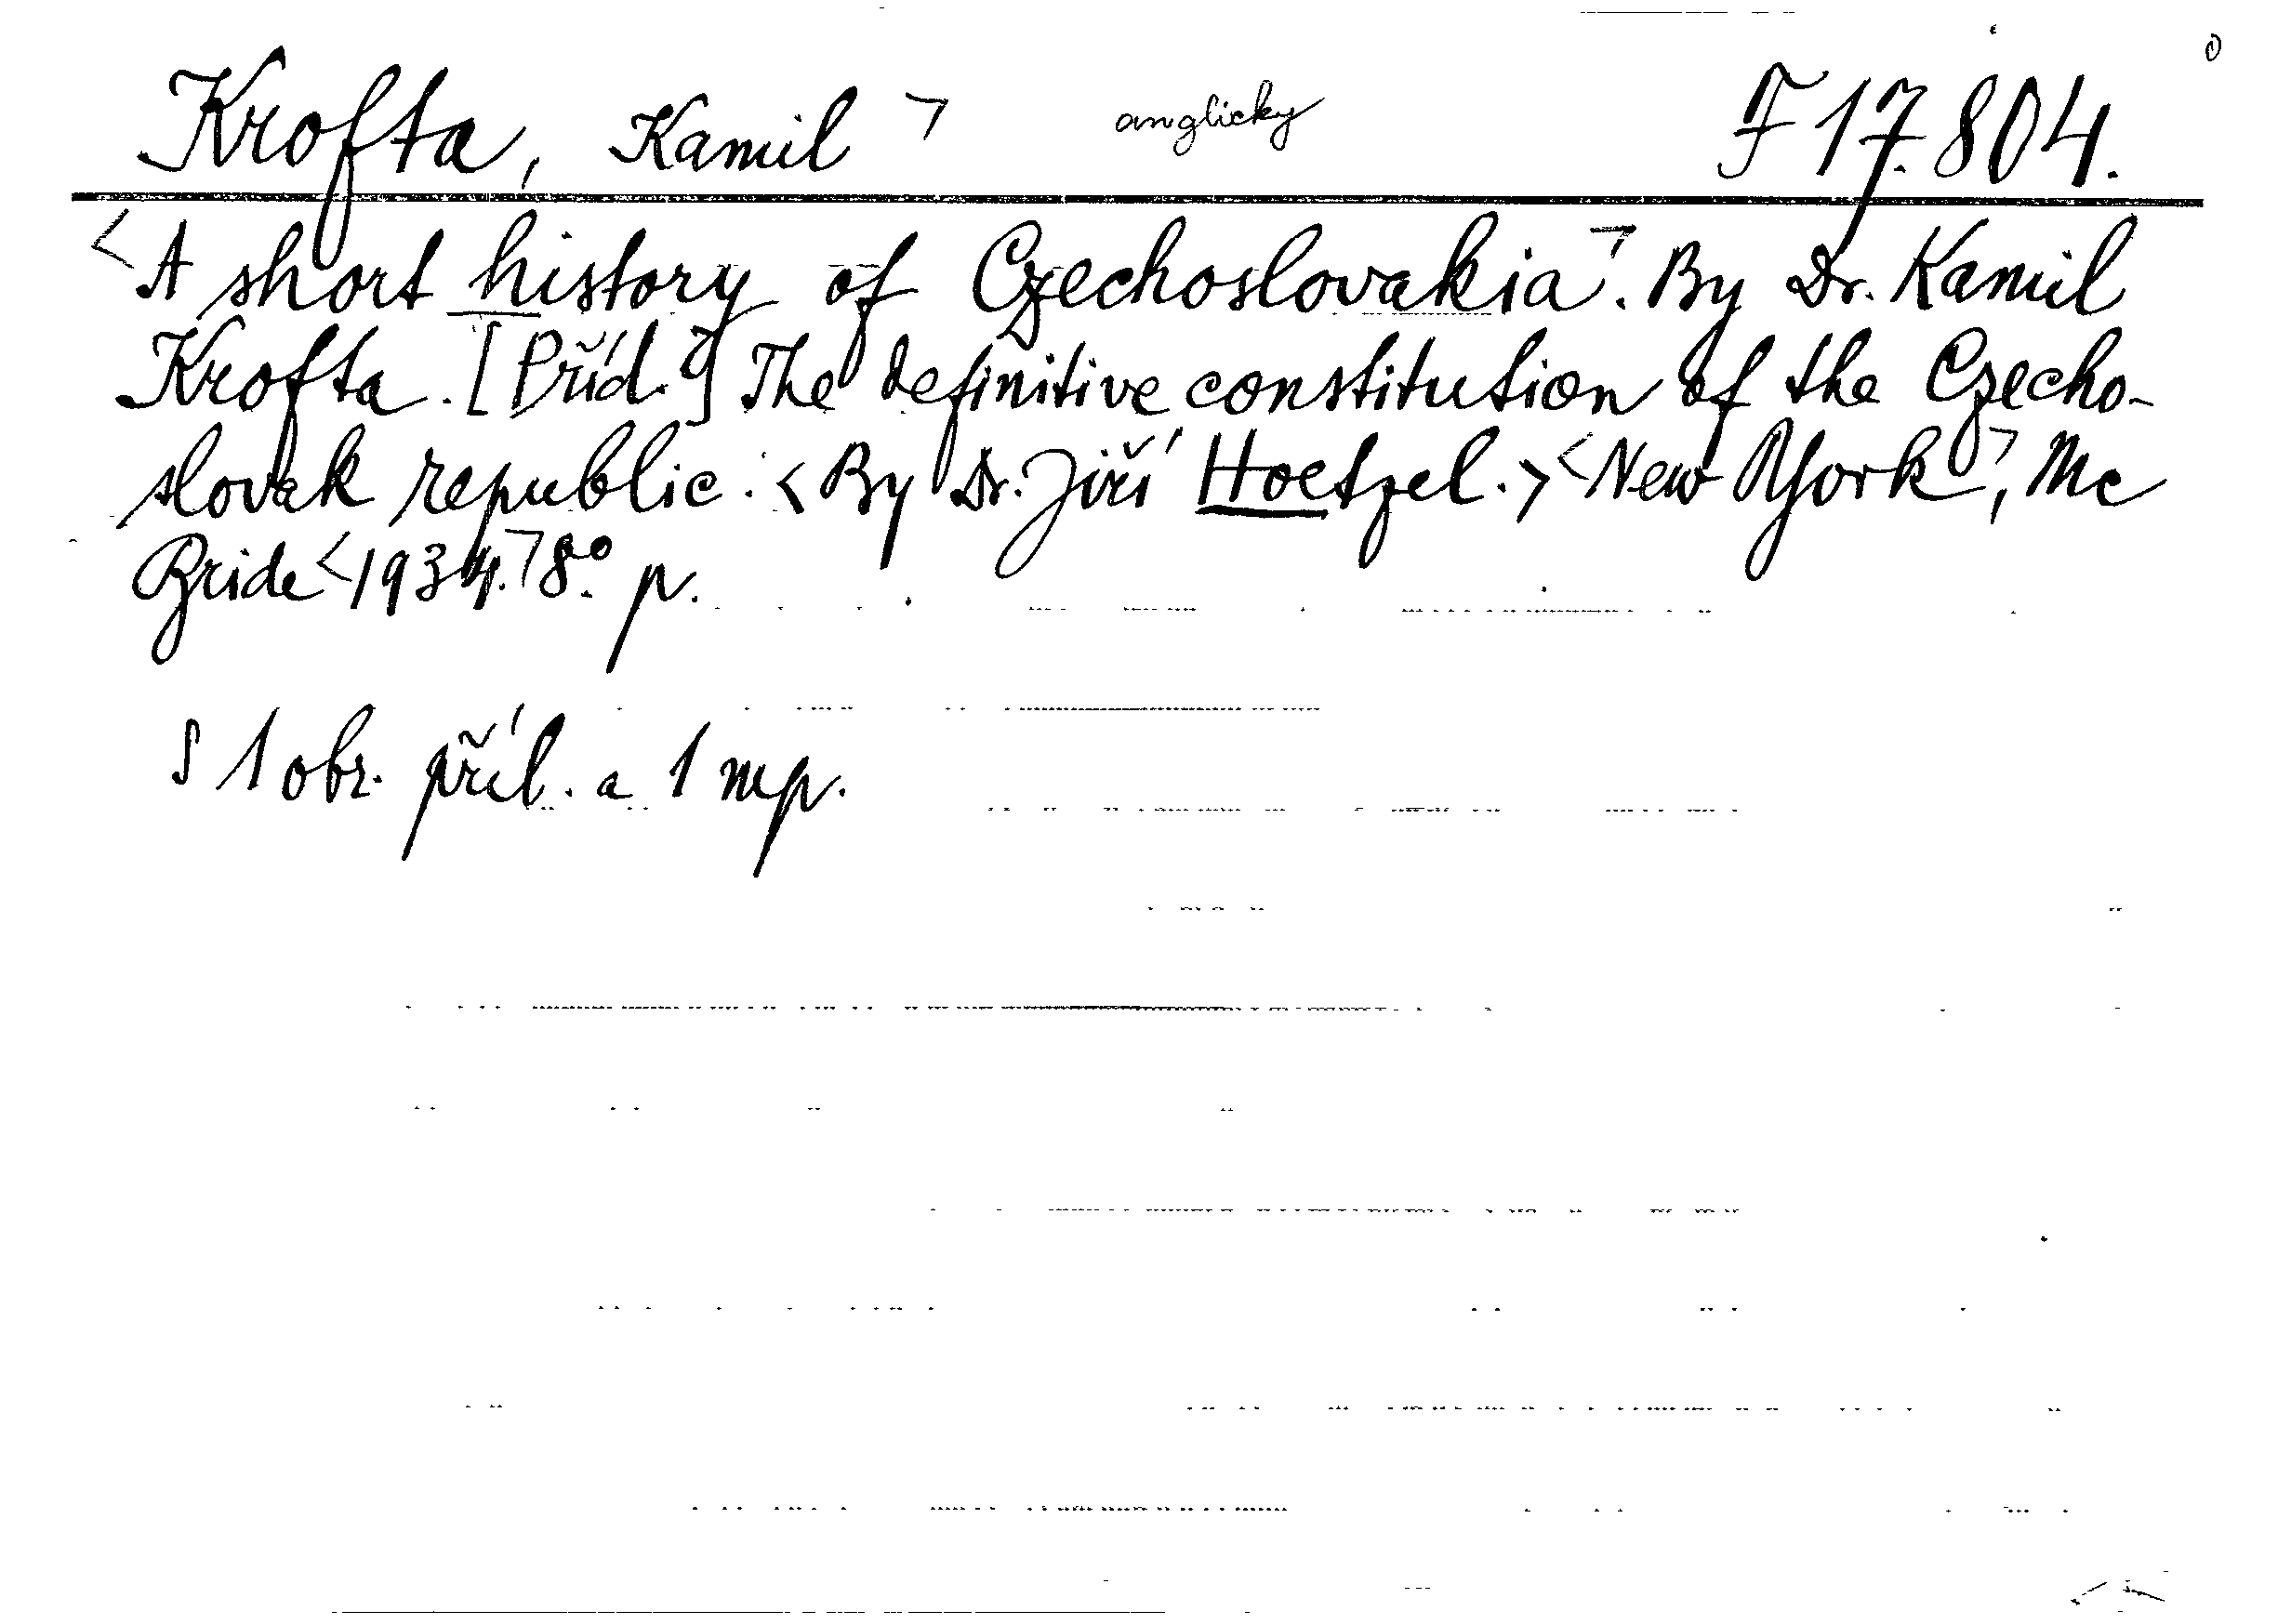 Krofta, Kamil ꓶ anglicky F 17.804.
<A short history of Czechoslovakia>. By Dr. Kamil
Krofta. [Příd.:] The definitive constitution of the Czecho-
slovak republic. <By Dr. Jiří Hoetzel.> <New York>, Mc
Bride <1934.> 8º. p.
S 1 obr. příl. a 1 mp.